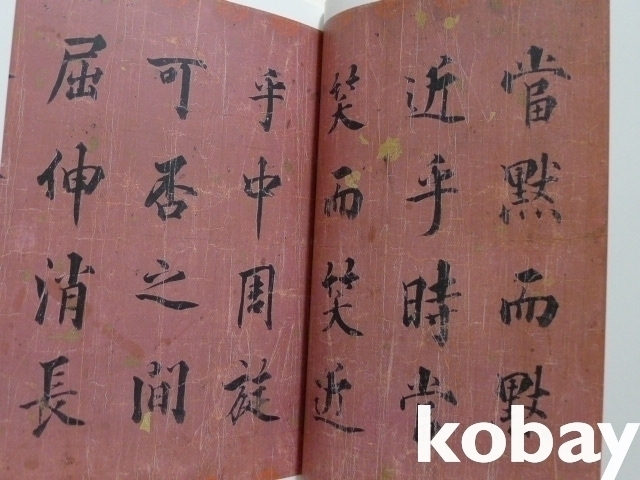 當默而默
近乎時當
笑而笑近
乎中周旋
可否之間
屈伸消長
kobay